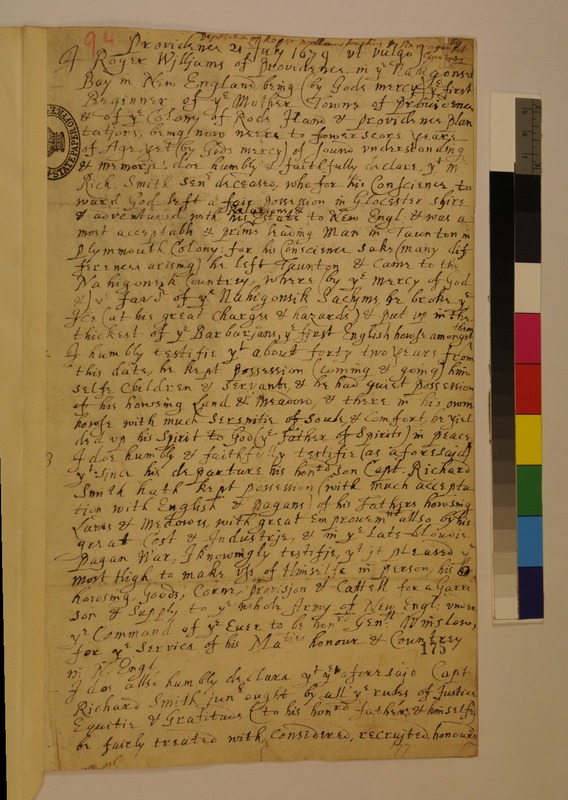 94
Providence 21 July 1679 ut vulgo
I Roger Williams of Providence in ye Nahigonset
Bay in New England being (by Gods mercy) ye first
Beginner of ye Mother Towne of Providence
& of ye Colony of Rode Iland & Providence Plan
tations, being now neere to fowerscore years
of Age yet (by Gods mercy) of sound understanding
& memorje: doe humbly & faithfully declare, yt Mr
Rich: Smith Senr deceased, who for his Conscience to
ward God left a faire possession in Glocester shire
& adventured with his Relations & Estate to New Engl: & was a
most acceptable & prime leading Man in Taunton in
Plymmouth Colony: for his Conscience sake (many dif
ferences arising) he left Taunton & came to the
Nahigonsik Countrey, where (by ye mercy of God
&) ye favor of ye Nahigonsik Sachims he broke ye
Ice (at his great Charges & hazards) & put up in the
thickest of ye Barbarians, ye first English howse amongst
them
I humbly testifie yt about forty two years from
this date, he kept possession (coming & going) him
selfe Children & Servants, & he had quiet possession
of his howsing Land & Meadow, & there in his own
howse with much Serenitie of Soule & Comfort he yiel
ded up his Spirit to God (ye Father of Spirits) in peace
I doe humbly & faithfully testifie (as aforesaid)
yt since his departure his honrd son Capt: Richard
Smith hath kept possession (with much accepta
tion with English & Pagans) of his Fathers howsing
Lands & Medowes, with great Emprouemnt allso by his
great Cost & Industrije, & in ye late bloudie
Pagan War, I knowingly testifie, yt it pleased ye
most High to make use of Himselfe in person, his
howsing Goods, Corne, Provision & Cattell for a Garri
son & Supply to ye whole Army of New Engl: under
ye Command of ye Ever to be honrd Genll Winslow,
for ye service of his Maties honour & Countrey
175
in N: Engl
I doe allso humbly declare yt ye aforesaid Capt
Richard Smith junr ought by all ye rules of Justice
Equitie & Gratitude (to his honrd father & himselfe
be fairly treated with, Considered, recruited, honourd